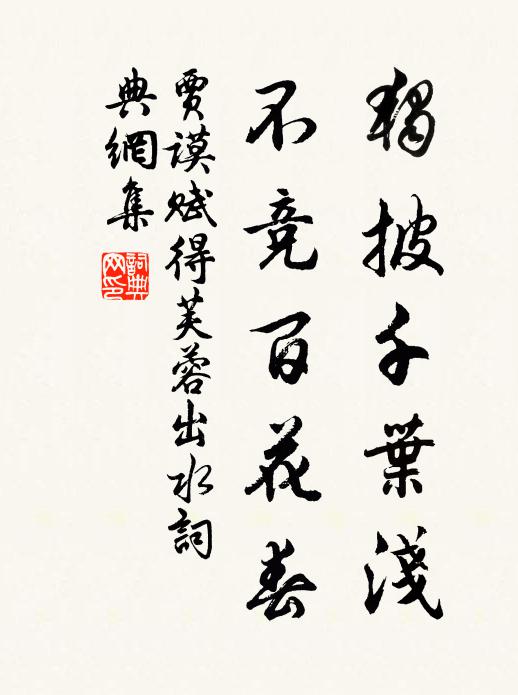 獨披千葉淺
不競百花春
賈謨賦得芙蓉出水詞
典網集
詞典
网印